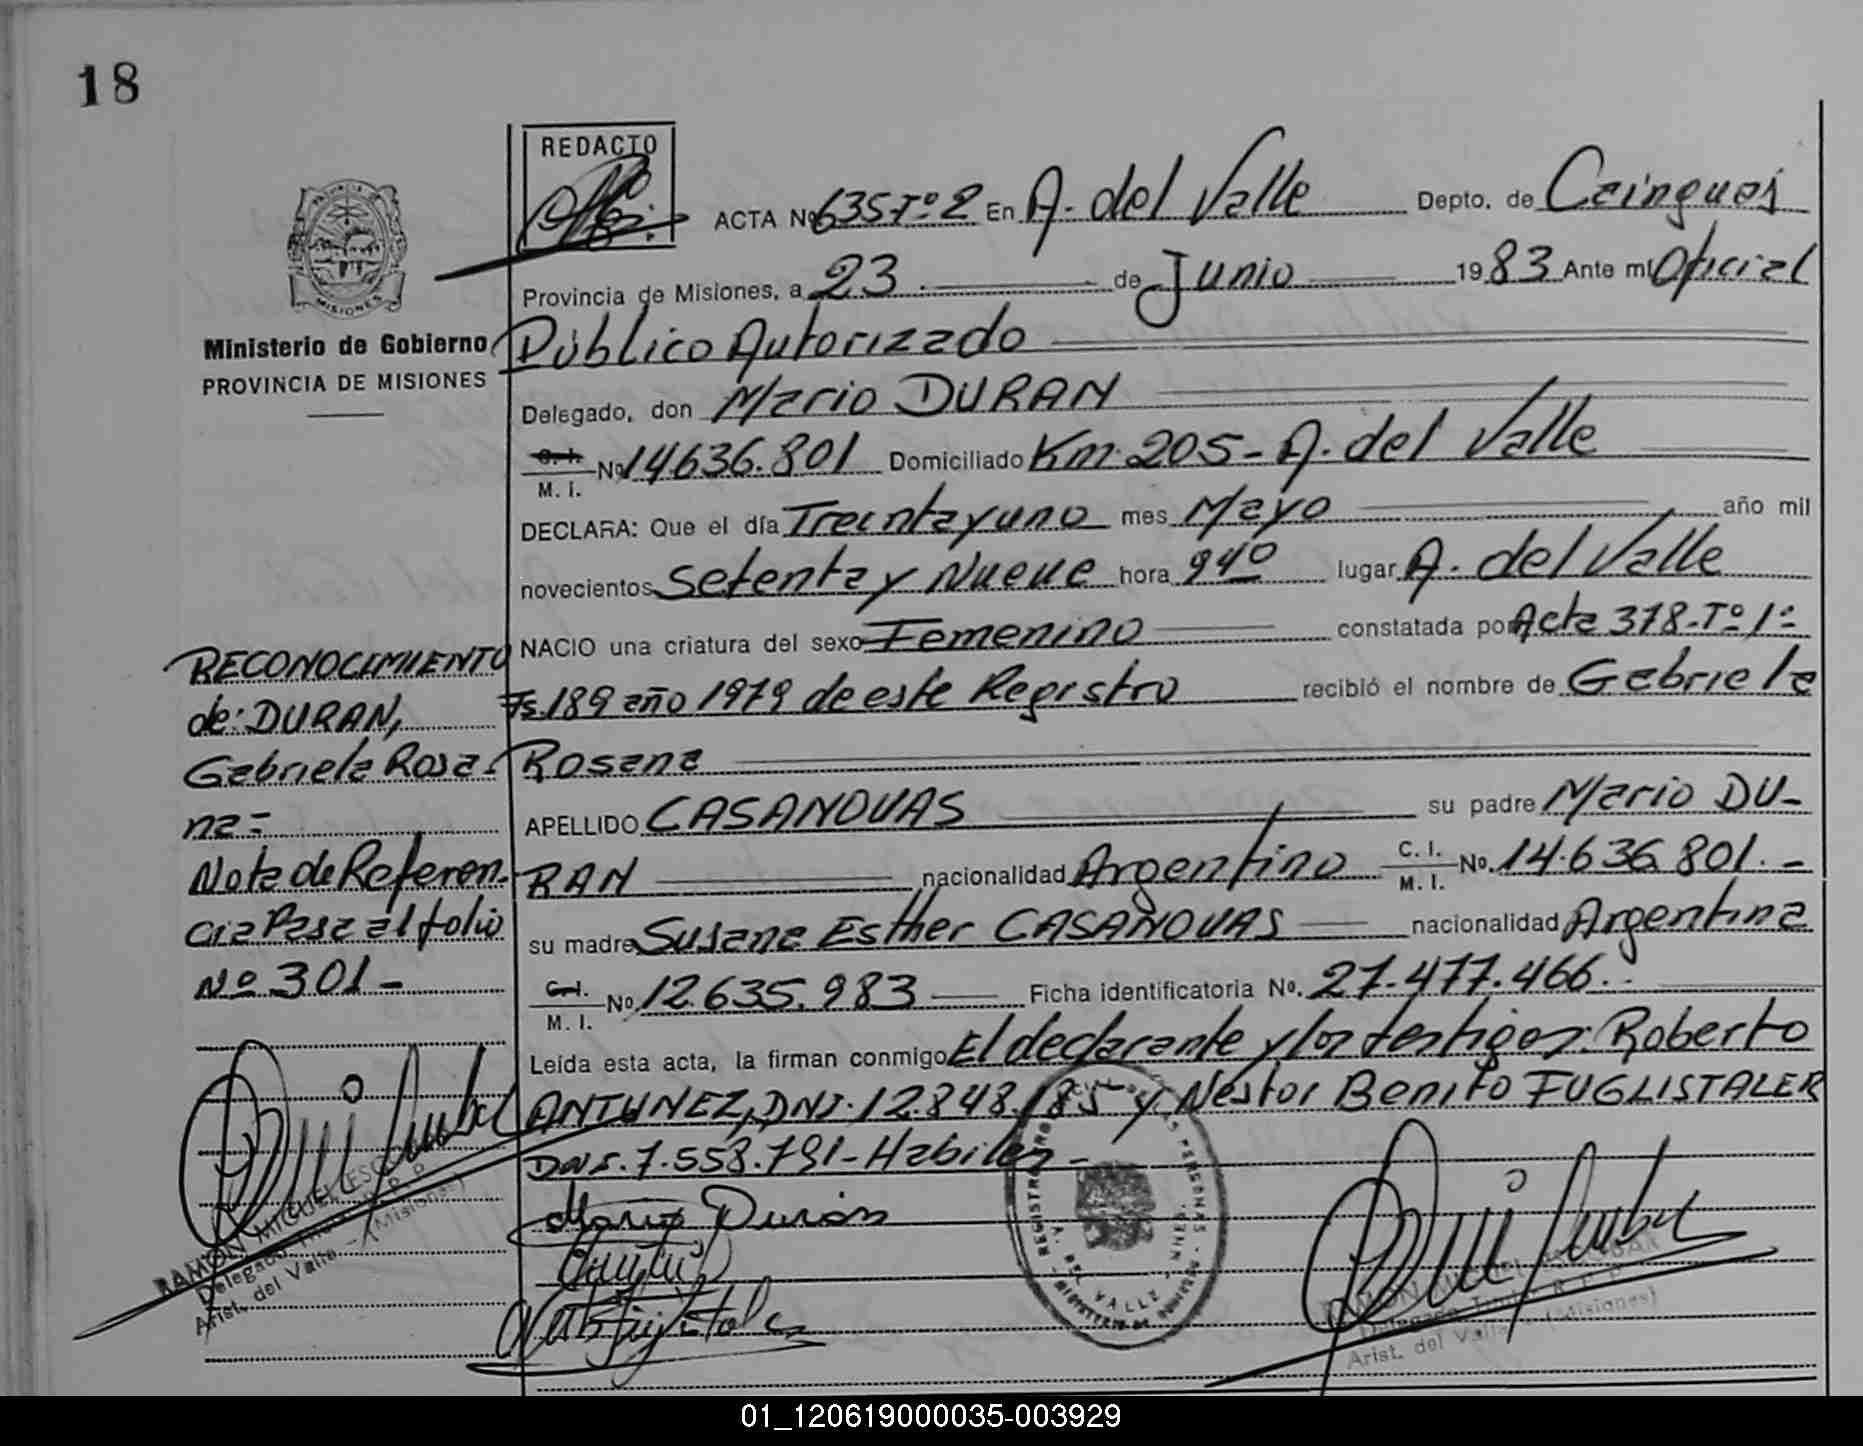 18
REDACTO
ACTA Nº 635-Tº 2 En A. del Valle Depto. de Cainguas
Provincia de Misiones, a 23 de Junio 1983 Ante mi Oficial
MISIONES
Ministerio de Gobierno
PROVINCIA DE MISIONES
Público Autorizado
Delegado, don Mario DURAN
C. I. M. I. Nº 14.636.801 Domiciliado Km 205 - A. del Valle
DECLARA: Que el día Treinta y uno mes Mayo año mil
novecientos Setenta y Nueve hora 9 40 lugar A. del Valle
NACIO una criatura del sexo Femenino constatada por Acta 378-Tº 1º
Fs. 189 año 1979 de este Registro recibió el nombre de Gabriela
Rosana
APELLIDO CASANOVAS su padre Mario DU-
RAN nacionalidad Argentino C. I. M. I. Nº. 14.636.801.-
su madre Susana Esther CASANOVAS nacionalidad Argentina
C. I. M. I. Nº 12.635.983 Ficha identificatoria Nº. 27.477.466.-
Leída esta acta, la firman conmigo El declarante y los testigos: Roberto
ANTUNEZ, DNI. 12.848.185 y Nestor Benito FUGLISTALER
DNI. 7.558.791 - Habiles -
RECONOCIMIENTO
de: DURAN,
Gabriela Rosa-
na-
Nota de Referen-
cia Pasa al folio
Nº 301-
Mario Duran
RAMON MIGUEL ESCOBAR
Delegado Titular R. P. P.
Arist. del Valle - (Misiones)
REGISTRO PERSONAS
A. DEL VALLE
MINISTERIO DE GOBIERNO
RAMON MIGUEL ESCOBAR
Delegado Titular R. P. P.
Arist. del Valle - (Misiones)
01_120619000035-003929